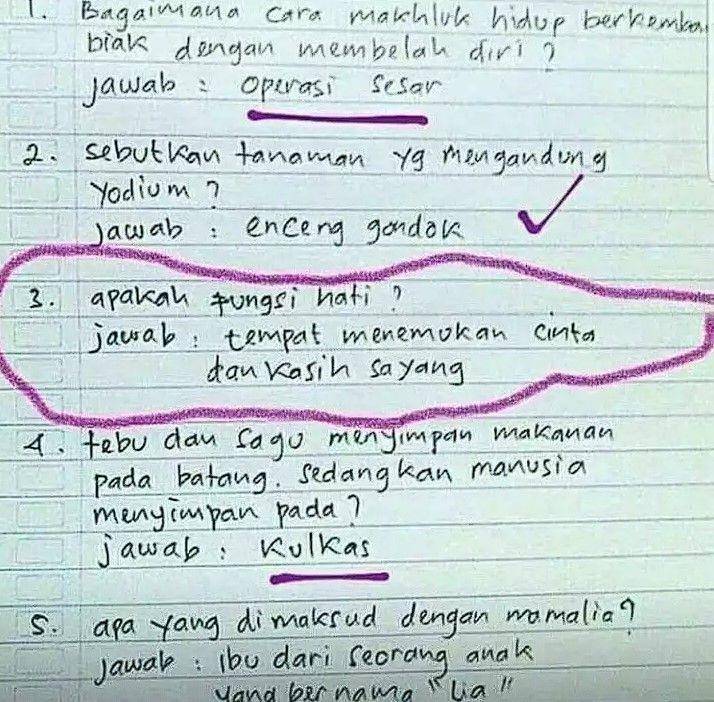 1. Bagaimana cara makhluk hidup berkembai
biak dengan membelah diri ?
jawab : operasi sesar
2. sebutkan tanaman yg mengandung
yodium ?
jawab : enceng gondok
3. apakah fungsi hati ?
jawab : tempat menemukan cinta
dan kasih sayang
4. tebu dan sagu menyimpan makanan
pada batang. sedangkan manusia
menyimpan pada ?
jawab : kulkas
5. apa yang dimaksud dengan mamalia ?
jawab : ibu dari seorang anak
yang bernama "lia"